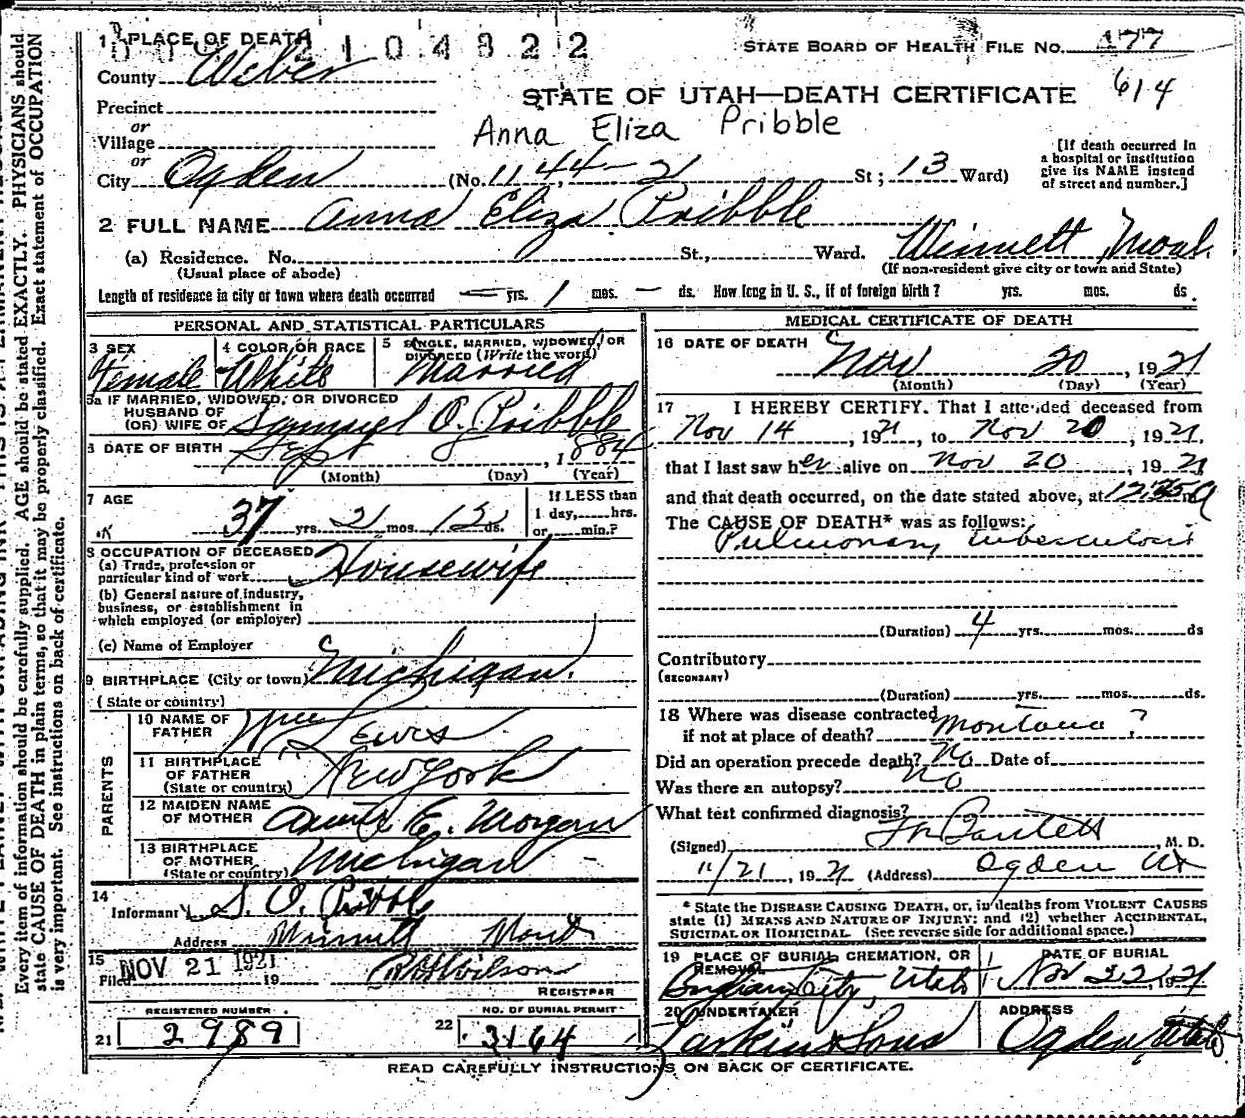 1 PLACE OF DEATH
2104822
STATE BOARD OF HEALTH FILE NO. 177
County Weber
614
STATE OF UTAH—DEATH CERTIFICATE
Precinct
or
Village
Anna Eliza Pribble
or
City Ogden (No. 1144-21 St; 13 Ward)
[If death occurred in
a hospital or institution
give its NAME instead
of street and number.]
2 FULL NAME Anna Eliza Pribble
(a) Residence. No. St., Ward. Winnett, Mont.
(Usual place of abode) (If non-resident give city or town and State)
Length of residence in city or town where death occurred — yrs. 1 mos. — ds. How long in U. S., if of foreign birth? yrs. mos. ds.
PERSONAL AND STATISTICAL PARTICULARS
3 SEX
Female
4 COLOR OR RACE
White
5 SINGLE, MARRIED, WIDOWED, OR
DIVORCED (Write the word)
Married
5a IF MARRIED, WIDOWED, OR DIVORCED
HUSBAND OF
(OR) WIFE OF Samuel O. Pribble
6 DATE OF BIRTH Sept , 1884
(Month) (Day) (Year)
7 AGE
37 yrs. 2 mos. ds.
If LESS than
1 day, hrs.
or min.?
8 OCCUPATION OF DECEASED
(a) Trade, profession or
particular kind of work Housewife
(b) General nature of industry,
business, or establishment in
which employed (or employer)
(c) Name of Employer
9 BIRTHPLACE (City or town) Michigan
(State or country)
PARENTS
10 NAME OF
FATHER Wm Lewis
11 BIRTHPLACE
OF FATHER
(State or country) New York
12 MAIDEN NAME
OF MOTHER E. Morgan
13 BIRTHPLACE
OF MOTHER
(State or country) Michigan
14
Informant S. O. Pribble
Address Winnett Mont
15
Filed NOV 21 1921 19
Wilson
REGISTRAR
REGISTERED NUMBER
21 2989
NO. OF BURIAL PERMIT
22 3164
MEDICAL CERTIFICATE OF DEATH
16 DATE OF DEATH
Nov 20, 1921
(Month) (Day) (Year)
17 I HEREBY CERTIFY. That I attended deceased from
Nov 14, 1921, to Nov 20, 1921
that I last saw her alive on Nov 20, 1921
and that death occurred, on the date stated above, at
The CAUSE OF DEATH* was as follows:
Pulmonary tuberculosis
(Duration) 4 yrs. mos. ds
Contributory
(SECONDARY)
(Duration) yrs. mos. ds.
18 Where was disease contracted
if not at place of death? Montana ?
Did an operation precede death? No Date of
Was there an autopsy? No
What test confirmed diagnosis?
(Signed) , M. D.
11/21, 1921 (Address) Ogden Ut
* State the DISEASE CAUSING DEATH, or, in deaths from VIOLENT CAUSES
state (1) MEANS AND NATURE OF INJURY; and (2) whether ACCIDENTAL,
SUICIDAL OR HOMICIDAL. (See reverse side for additional space.)
19 PLACE OF BURIAL, CREMATION, OR
REMOVAL
City, Utah
DATE OF BURIAL
Nov 22, 1921
20 UNDERTAKER
Larkin & Sons
ADDRESS
Ogden, Utah
READ CAREFULLY INSTRUCTIONS ON BACK OF CERTIFICATE.
Every item of information should be carefully supplied. AGE should be stated EXACTLY. PHYSICIANS should
state CAUSE OF DEATH in plain terms, so that it may be properly classified. Exact statement of OCCUPATION
is very important. See instructions on back of certificate.